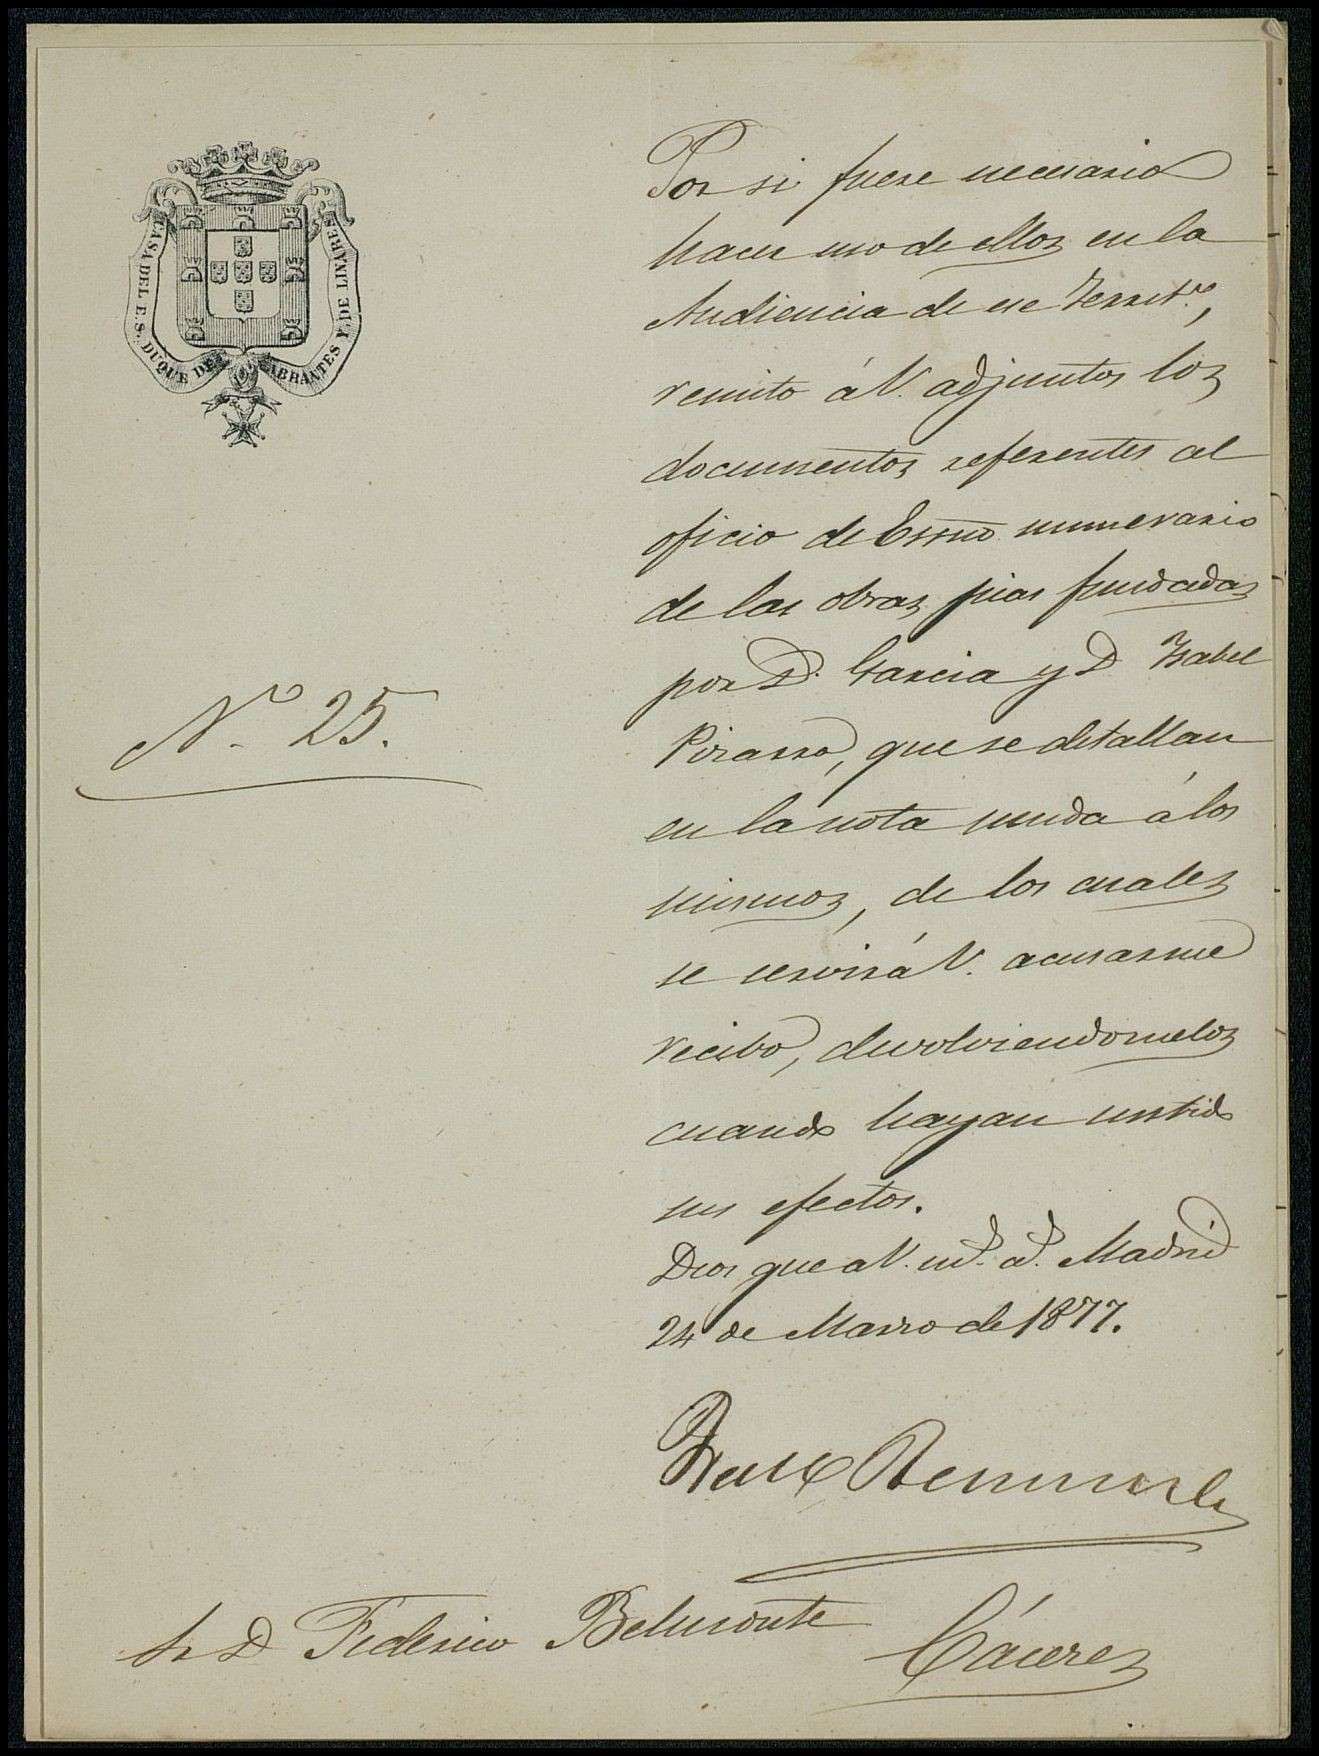 CASA DEL E. S. DUQUE DE ABRANTES Y DE LINARES
Por si fuere necesario
hacer uso de ellos en la
Audiencia de ese Territ.º,
remito á V. adjuntos los
documentos referentes al
oficio de Essno numerario
de las obras pias fundadas
por D. Garcia y D Isabel
Pizarro, que se detallan
en la nota unida á los
mismos, de los cuales
se servirá V. acusarme
recibo, devolviendomelos
cuando hayan surtido
sus efectos.
Dios gue a V. m.s a.s Madrid
24 de Marzo de 1877.
Nº 25.
Sr D Federico Belmonte
Cáceres